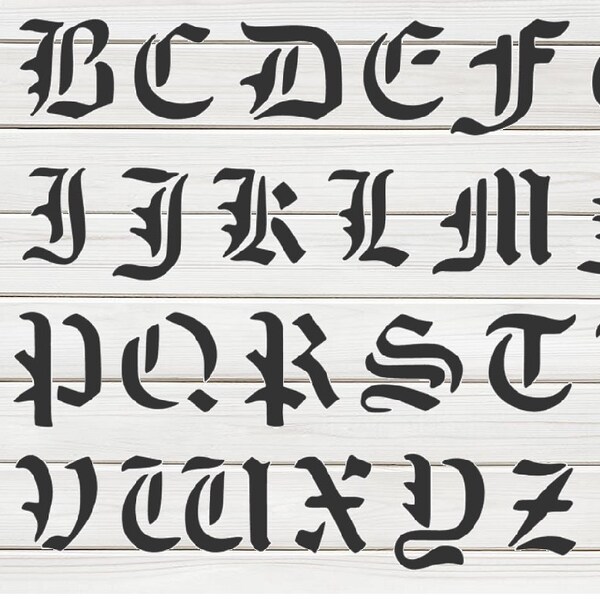 B C D E F
I J K L M
P Q R S T
V W X Y Z